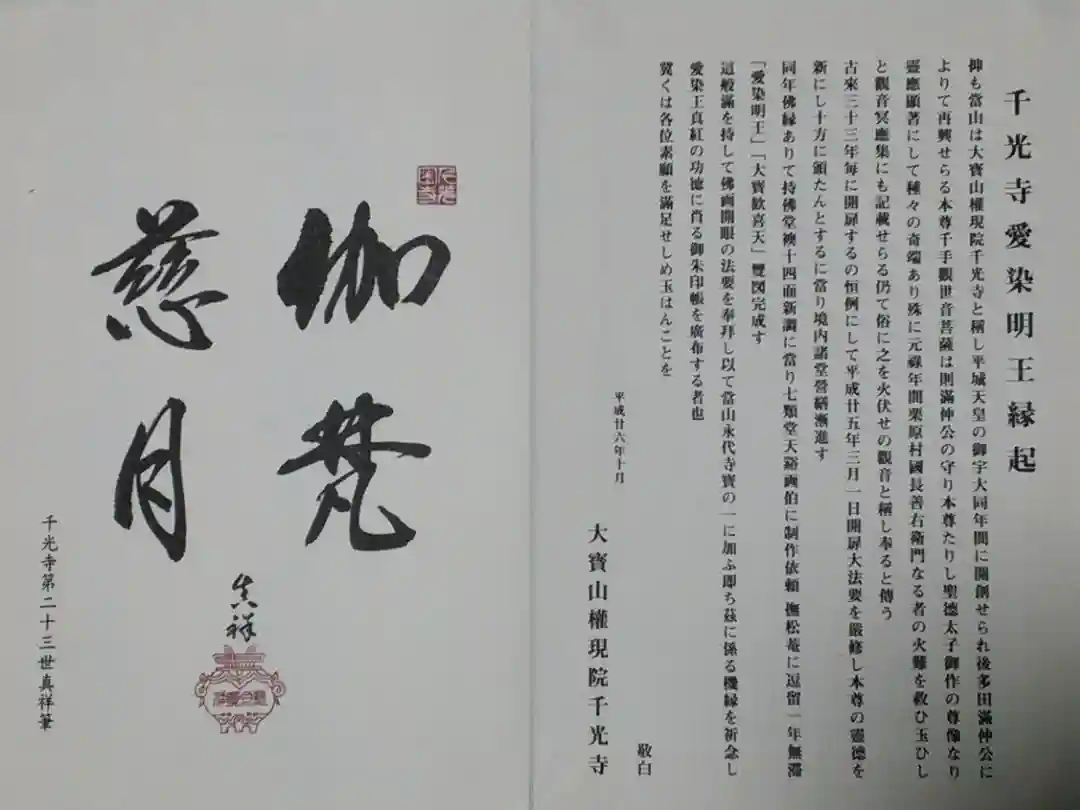 千光寺愛染明王縁起
抑も當山は大寶山權現院千光寺と稱し平城天皇の御宇大同年間に開創せられ後多田滿仲公に
よりて再興せらる本尊千手觀世音菩薩は則滿仲公の守り本尊たりし聖德太子御作の尊像なり
靈應顯著にして種々の奇端あり殊に元祿年間栗原村國長善右衛門なる者の火難を救ひ玉ひし
と觀音冥應集にも記載せらる仍て俗に之を火伏せの觀音と稱し奉ると傳う
古來三十三年毎に開扉するの恒例にして平成廿五年三月一日開扉大法要を嚴修し本尊の靈德を
新にし十方に頒たんとするに當り境内諸堂營繕漸進す
同年佛縁ありて持佛堂襖十四面新調に當り七類堂天谿画伯に制作依頼 撫松菴に逗留一年無滯
「愛染明王」「大寶歡喜天」雙図完成す
這般滿を持して佛画開眼の法要を奉拜し以て當山永代寺寶の一に加ふ即ち茲に係る機縁を祈念し
愛染王真紅の功徳に肖る御朱印帳を廣布する者也
冀くは各位素願を滿足せしめ玉はんことを
平成廿六年十月
敬白
大寶山權現院千光寺
伽梵
慈月
真祥
千光寺第二十三世真祥筆